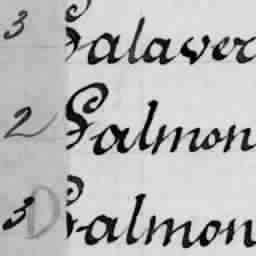 3 Salaver
2 Salmon
3 D Salmon